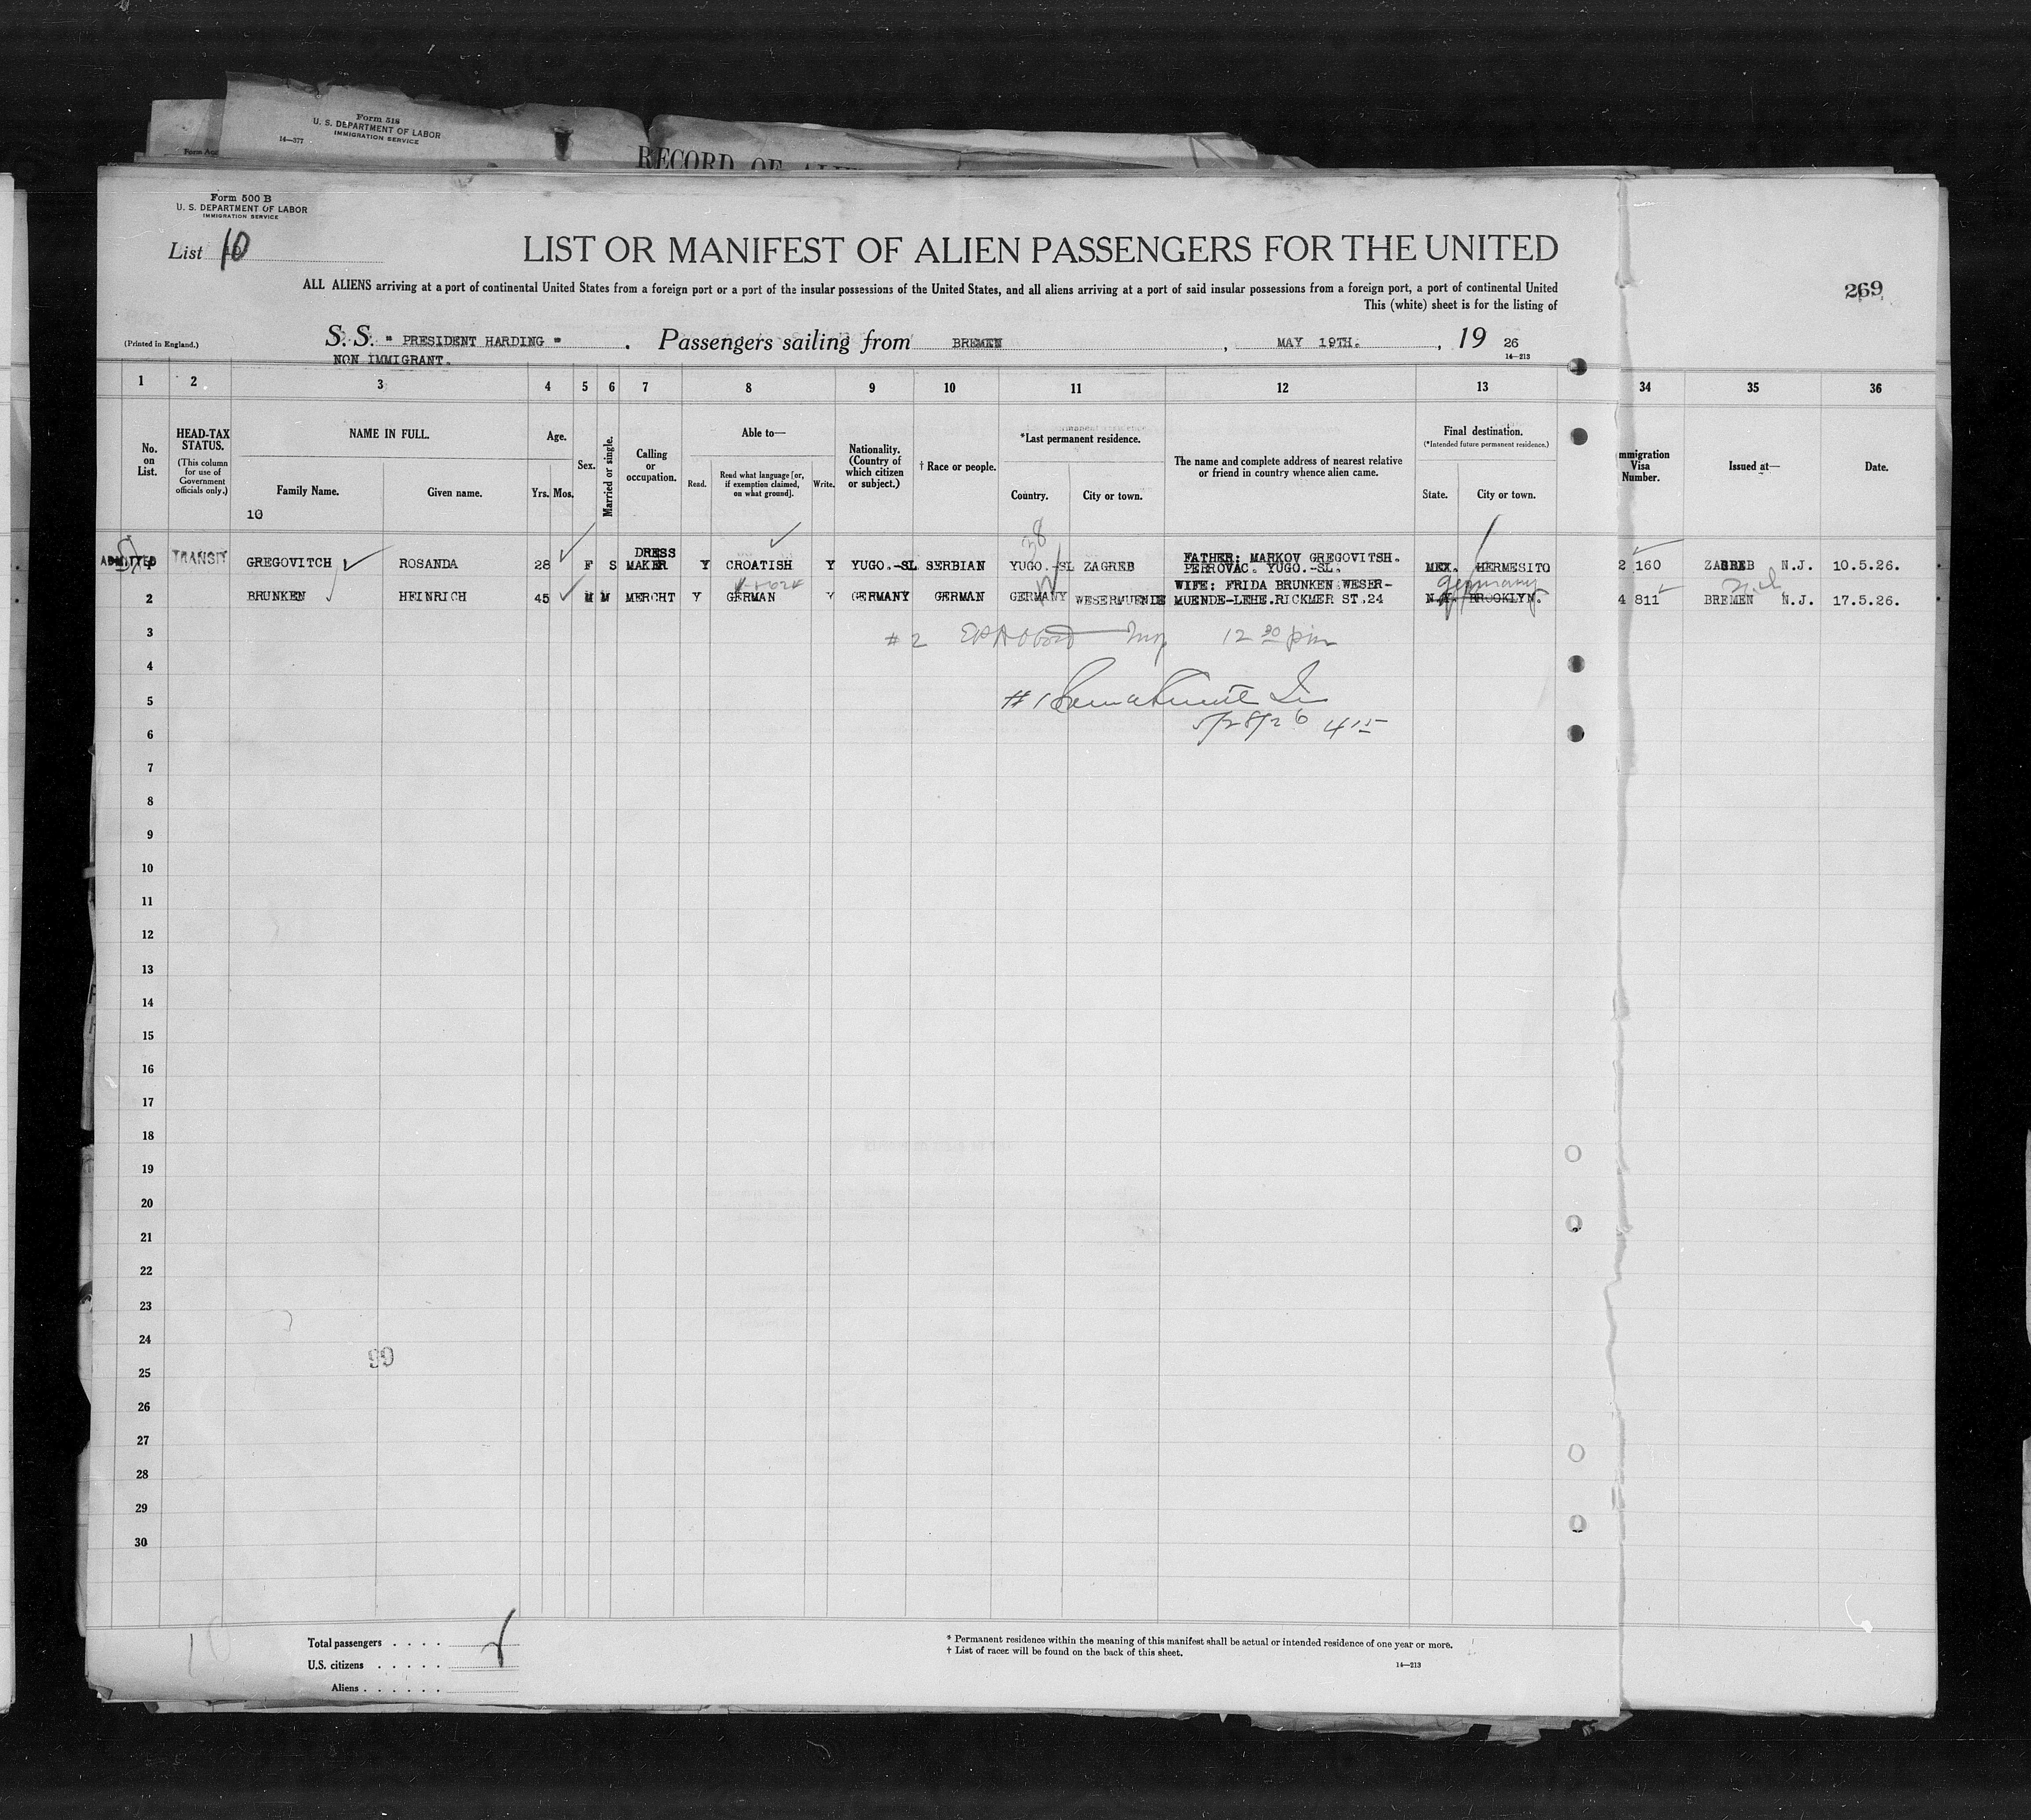 Form 518
U. S. DEPARTMENT OF LABOR
IMMIGRATION SERVICE
14—377
RECORD OF
Form 500 B
U. S. DEPARTMENT OF LABOR
IMMIGRATION SERVICE
List 10
LIST OR MANIFEST OF ALIEN PASSENGERS FOR THE UNITED
269
ALL ALIENS arriving at a port of continental United States from a foreign port or a port of the insular possessions of the United States, and all aliens arriving at a port of said insular possessions from a foreign port, a port of continental United
This (white) sheet is for the listing of
(Printed in England.)
S. S. " PRESIDENT HARDING " . Passengers sailing from BREMEN , MAY 19TH. , 19 26
14—213
NON IMMIGRANT.
1 2 3 4 5 6 7 8 9 10 11 12 13 34 35 36
No. on List.
HEAD-TAX STATUS.
(This column for use of Government officials only.)
NAME IN FULL.
Family Name.
Given name.
10
Age.
Yrs. Mos.
Sex.
Married or single.
Calling or occupation.
Able to—
Read.
Read what language [or, if exemption claimed, on what ground].
Write.
Nationality. (Country of which citizen or subject.)
† Race or people.
*Last permanent residence.
Country.
City or town.
The name and complete address of nearest relative or friend in country whence alien came.
Final destination.
(*Intended future permanent residence.)
State.
City or town.
mmigration Visa Number.
Issued at—
Date.
ADMITTED TRANSIT GREGOVITCH ROSANDA 28 F S DRESS MAKER Y CROATISH Y YUGO.-SL SERBIAN YUGO.-SL ZAGREB FATHER: MARKOV GREGOVITSH. PERROVAC. YUGO.-SL. MEX. HERMESITO 2 160 ZAGREB N.J. 10.5.26.
2 BRUNKEN HEINRICH 45 M M MERCHT Y GERMAN Y GERMANY GERMAN GERMANY WESERMUENDE WIFE: FRIDA BRUNKEN WESER-MUENDE-LEHE.RICKMER ST.24 N.Y. BROOKLYN. Germany 4 811 BREMEN N.J. 17.5.26.
3 # 2 12 30 pm
4
5 # 1
6 5/28/26 4 15
7
8
9
10
11
12
13
14
15
16
17
18
19
20
21
22
23
24
99
25
26
27
28
29
30
Total passengers . . . .
U.S. citizens . . . . .
Aliens . . . . . .
* Permanent residence within the meaning of this manifest shall be actual or intended residence of one year or more.
† List of races will be found on the back of this sheet.
14—213